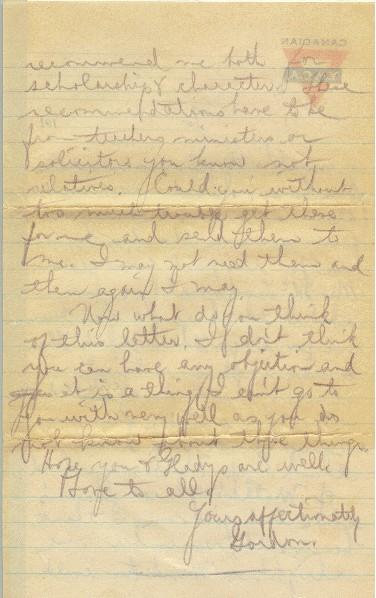 CANADIAN
recommend me both for
scholarship & character. These
recommendations have to be
from teachers ministers or
solicitors you know not
relatives. Could you without
too much trouble get these
for me and send them to
me. I may not need them and
then again I may.
Now what do you think
of this letter. I don't think
you can have any objection and
it is a thing I can't go to
you with very well as you do
not know about these things.
Hope you & Gladys are well.
Love to all.
Yours affectionately
Gordon.